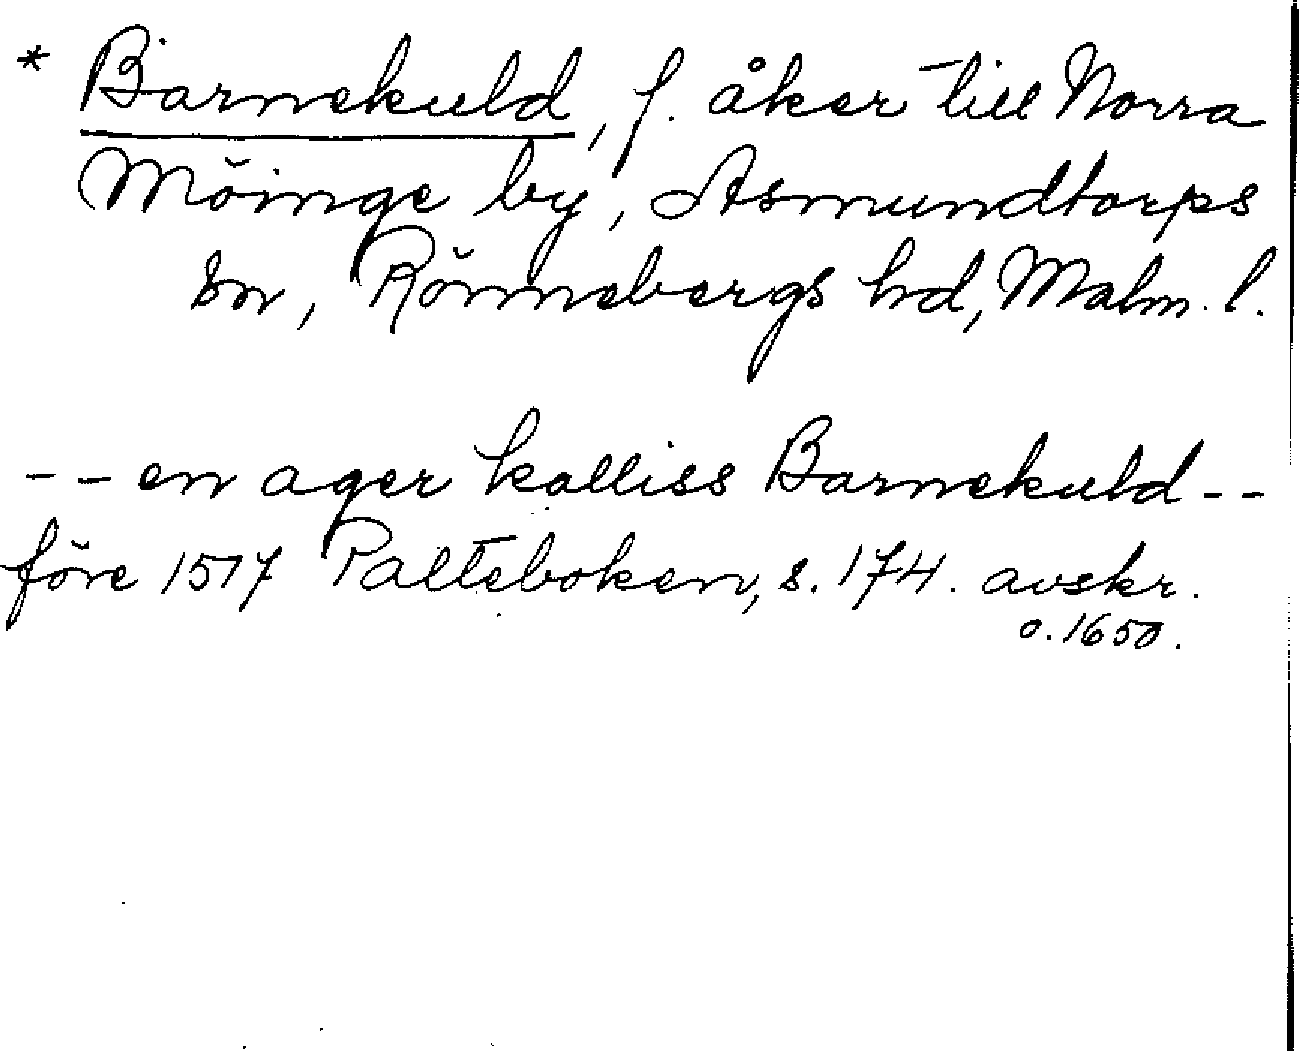 * Barnekuld, f. åker till Norra
Möinge by, Asmundtorps
sn, Rönnebergs hd, Malm. l.
-- en ager kalliss Barnekuld --
före 1517 Palteboken, s. 174. avskr.
o. 1650.